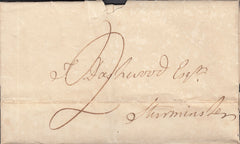 T Dashwood Esqr.
2
Sturminster